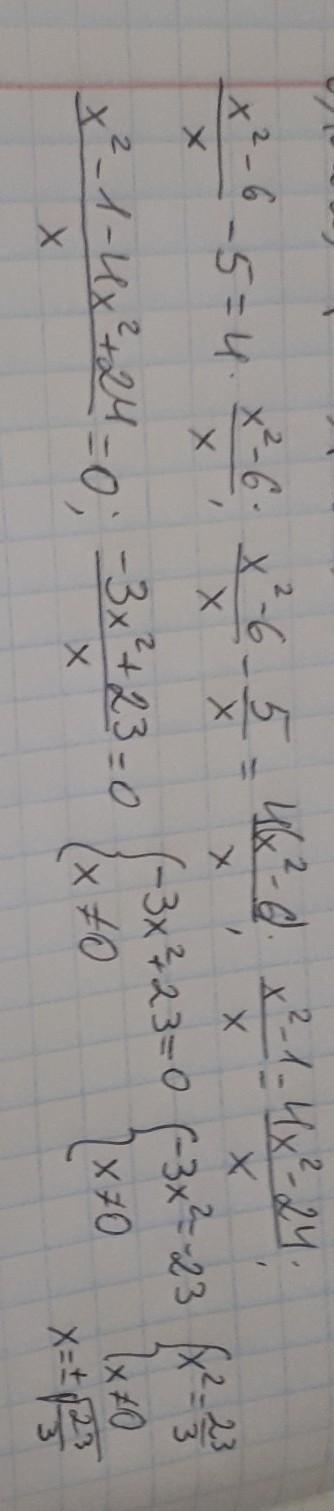 x² - 6 / x - 5 = 4 · x² - 6 / x ; x² - 6 / x - 5 / x = 4(x² - 6) / x ; x² - 1 / x = 4x² - 24 / x ;
x² - 1 - 4x² + 24 / x = 0 ; -3x² + 23 / x = 0 { -3x² + 23 = 0 { -3x² = -23 { x² = 23 / 3
x ≠ 0 x ≠ 0 x ≠ 0
x = ± √23 / 3